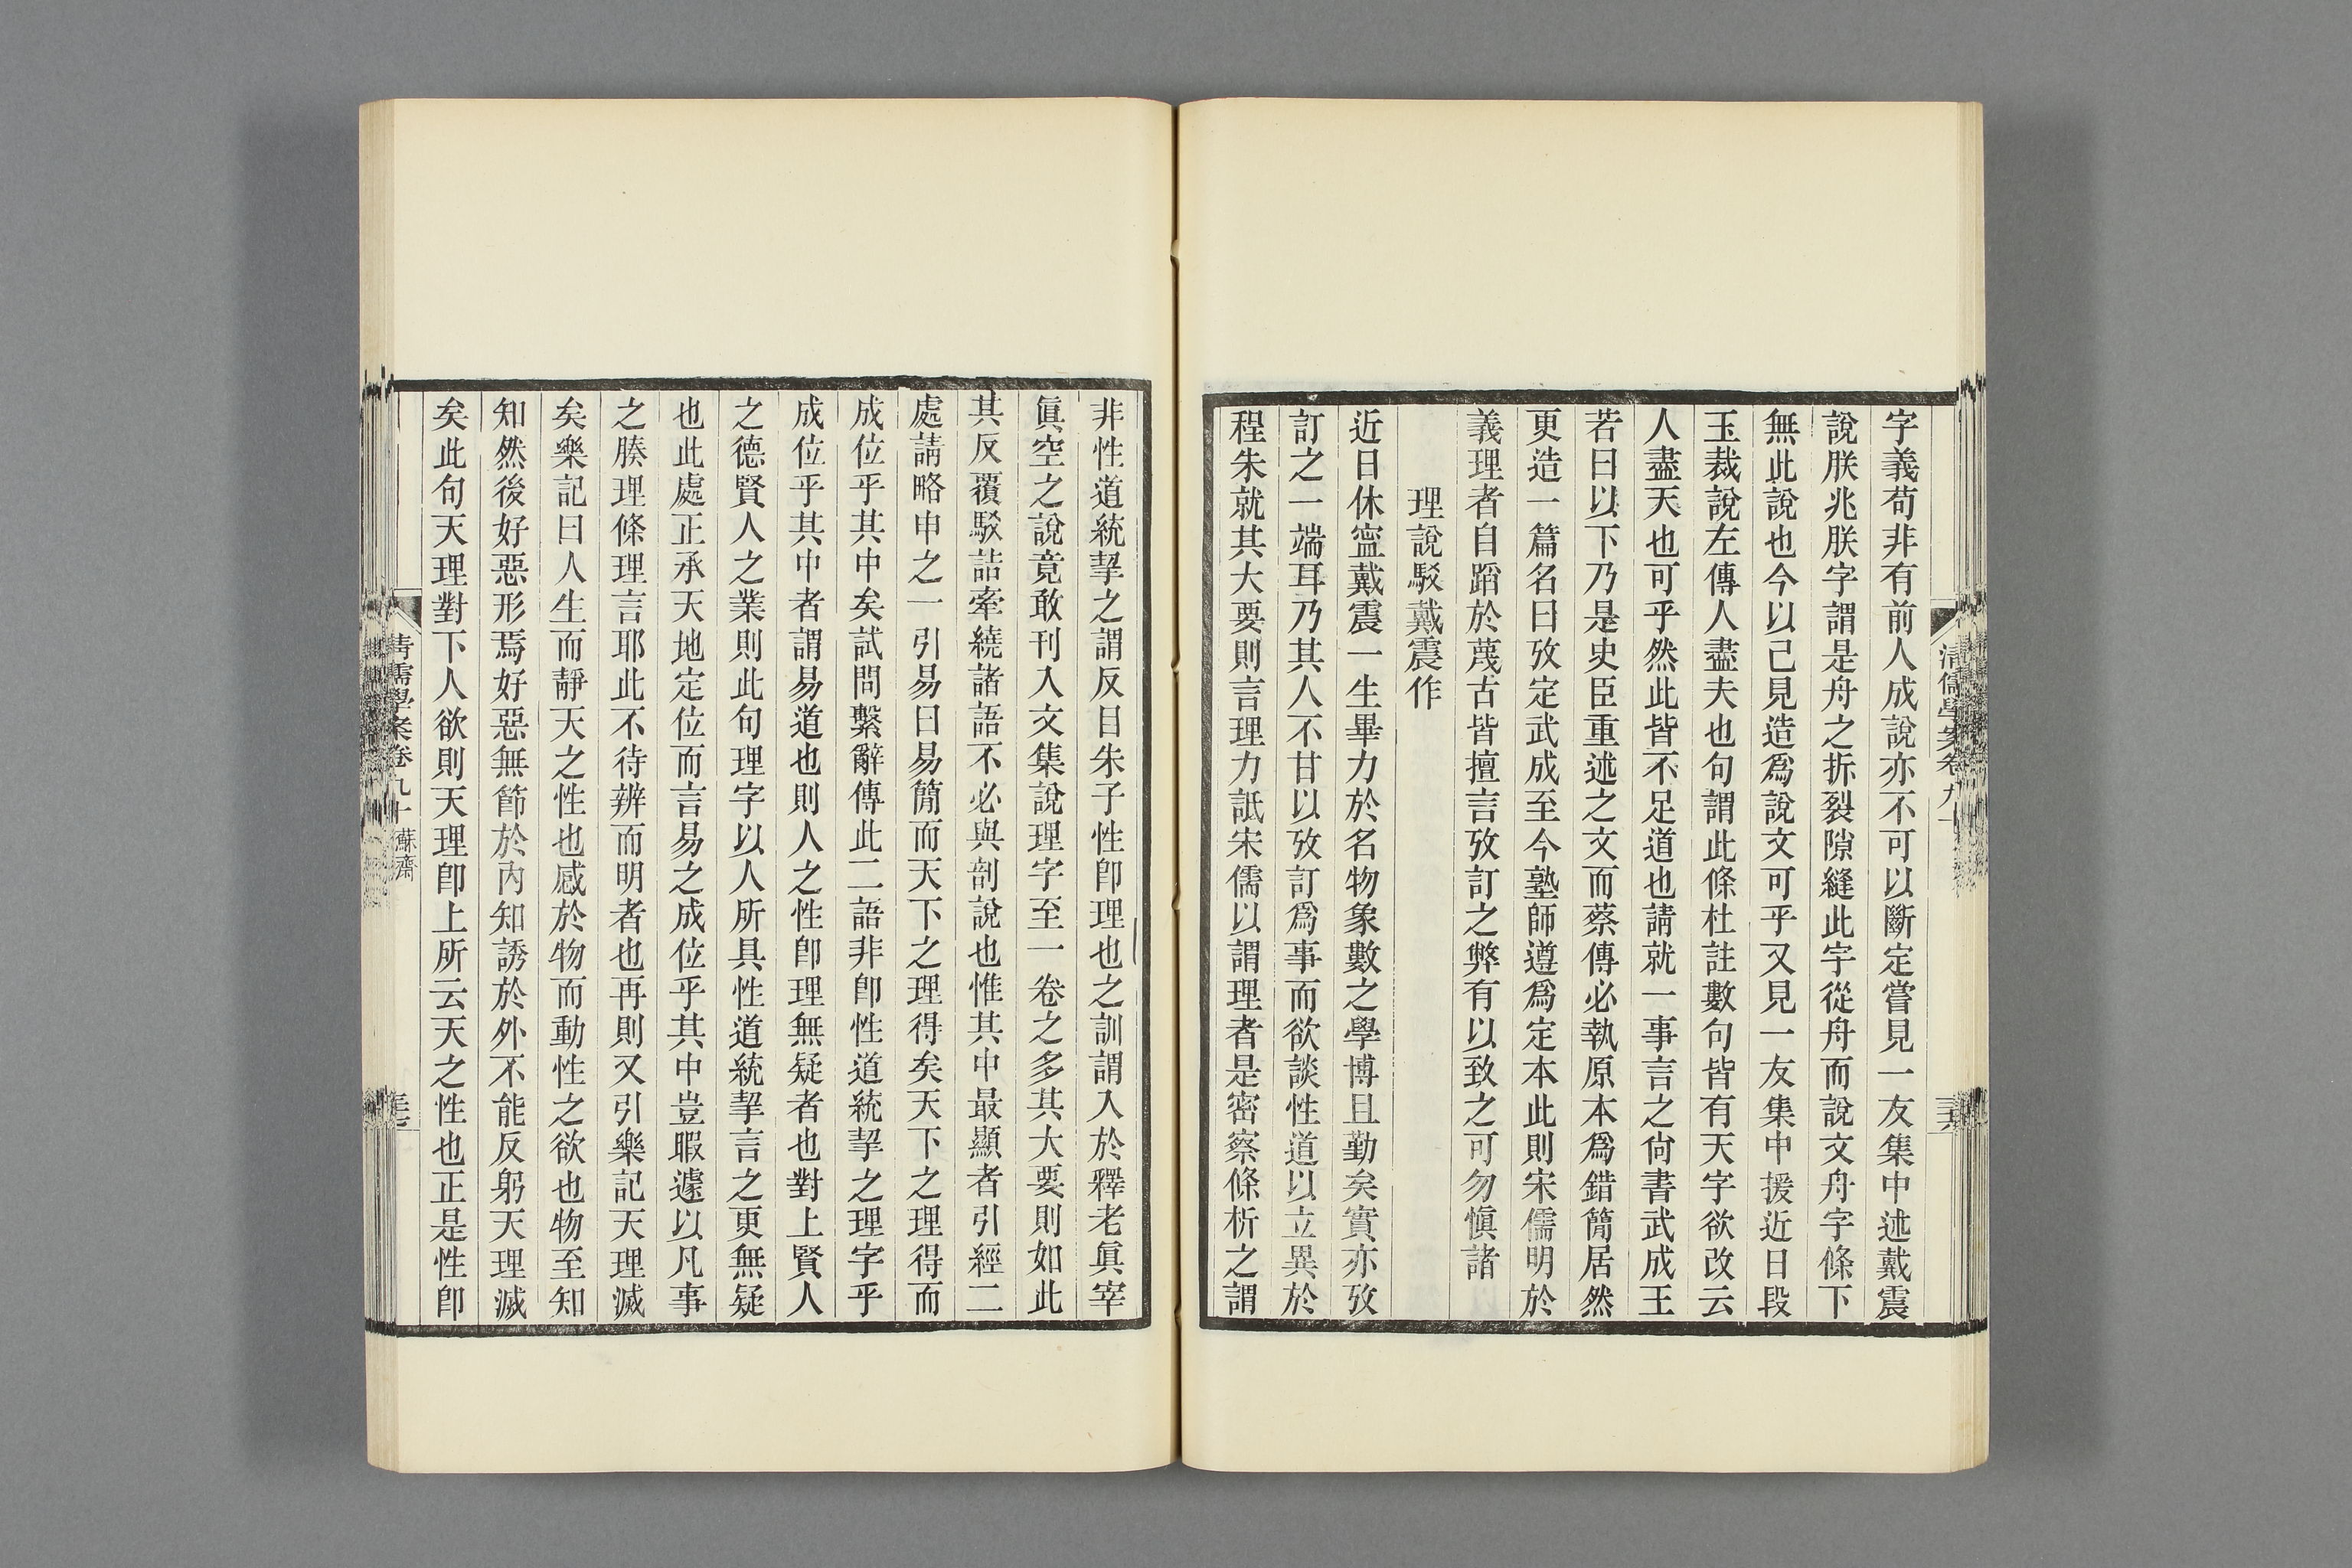 字義苟非有前人成說亦不可以斷定嘗見一友集中述戴震
說朕兆朕字謂是舟之拆裂隙縫此字從舟而說文舟字條下
無此說也今以己見造爲說文可乎又見一友集中援近日段
玉裁說左傳人盡夫也句謂此條杜註數句皆有天字欲改云
人盡天也可乎然此皆不足道也請就一事言之尙書武成王
若曰以下乃是史臣重述之文而蔡傳必執原本爲錯簡居然
更造一篇名曰攷定武成至今塾師遵爲定本此則宋儒明於
義理者自蹈於蔑古皆擅言攷訂之弊有以致之可勿愼諸
理說駁戴震作
近日休寍戴震一生畢力於名物象數之學博且勤矣實亦攷
訂之一端耳乃其人不甘以攷訂爲事而欲談性道以立異於
程朱就其大要則言理力詆宋儒以謂理者是密察條析之謂
非性道統挈之謂反目朱子性卽理也之訓謂入於釋老眞宰
眞空之說竟敢刊入文集說理字至一卷之多其大要則如此
其反覆駁詰牽繞諸語不必與剖說也惟其中最顯者引經二
處請略申之一引易曰易簡而天下之理得矣天下之理得而
成位乎其中矣試問繫辭傳此二語非卽性道統挈之理字乎
成位乎其中者謂易道也則人之性卽理無疑者也對上賢人
之德賢人之業則此句理字以人所具性道統挈言之更無疑
也此處正承天地定位而言易之成位乎其中豈暇遽以凡事
之腠理條理言耶此不待辨而明者也再則又引樂記天理滅
矣樂記曰人生而靜天之性也感於物而動性之欲也物至知
知然後好惡形焉好惡無節於內知誘於外不能反躬天理滅
矣此句天理對下人欲則天理卽上所云天之性也正是性卽
清儒學案卷九十 蘇齋